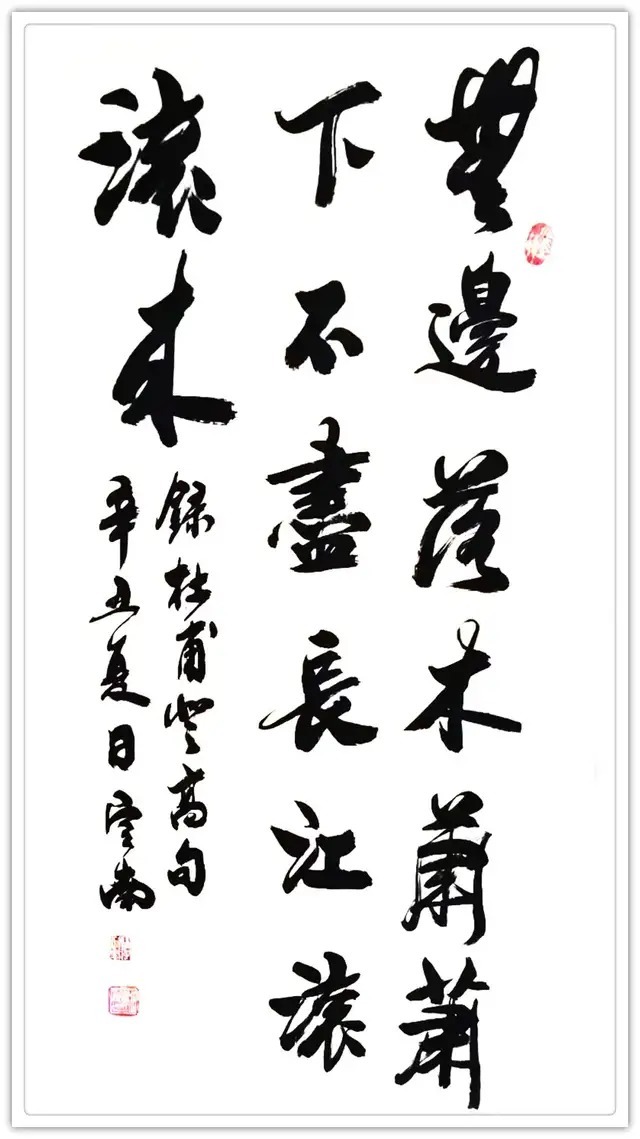 無邊落木蕭蕭
下不盡長江滾
滾來
錄杜甫登高句
辛丑夏日